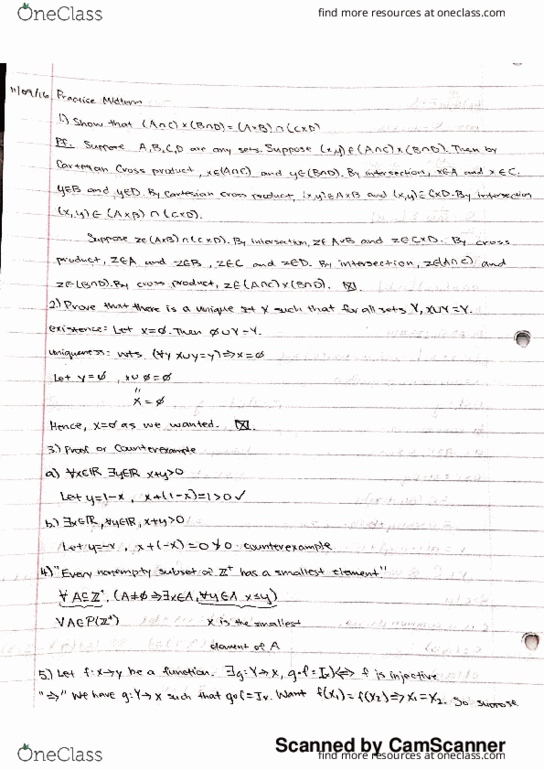 OneClass
find more resources at oneclass.com
11/09/16 Practice Midterm
1.) Show that (A∩C)×(B∩D)=(A×B)∩(C×D)
Pf. Suppose A,B,C,D are any sets. Suppose (x,y)∈(A∩C)×(B∩D). Then by
Cartesian Cross product, x∈(A∩C) and y∈(B∩D). By intersection, x∈A and x∈C.
y∈B and y∈D. By Cartesian cross product, (x,y)∈A×B and (x,y)∈C×D. By intersection
(x,y)∈(A×B)∩(C×D).
Suppose z∈(A×B)∩(C×D). By intersection, z∈A×B and z∈C×D. By cross
product, z∈A and z∈B, z∈C and z∈D. By intersection, z∈(A∩C) and
z∈(B∩D). By cross product, z∈(A∩C)×(B∩D). ☒.
2.) Prove that there is a unique set X such that for all sets Y, X∪Y=Y.
existence: Let x=∅. Then ∅∪Y=Y.
uniqueness: wts (∀y x∪y=y)⇒x=∅
Let y=∅, x∪∅=∅
"
x=∅
Hence, x=∅ as we wanted. ☒.
3.) Proof or Counterexample
a) ∀x∈ℝ ∃y∈ℝ x+y>0
Let y=1-x, x+(1-x)=1>0 ✓
b.) ∃x∈ℝ, ∀y∈ℝ, x+y>0
Let y=-x, x+(-x)=0≯0 counterexample
4.) "Every nonempty subset of ℤ⁺ has a smallest element"
∀A⊆ℤ⁺, (A≠∅⇒∃x∈A, ∀y∈A x≤y)
∀A∈P(ℤ⁺) x is the smallest
element of A
5.) Let f:x→y be a function. ∃g:Y→x, g∘f=Iₓ⟺ f is injective
"⇒" We have g:Y→x such that g∘f=Iₓ. Want f(x₁)=f(x₂)⇒x₁=x₂. So suppose
Scanned by CamScanner
OneClass
find more resources at oneclass.com